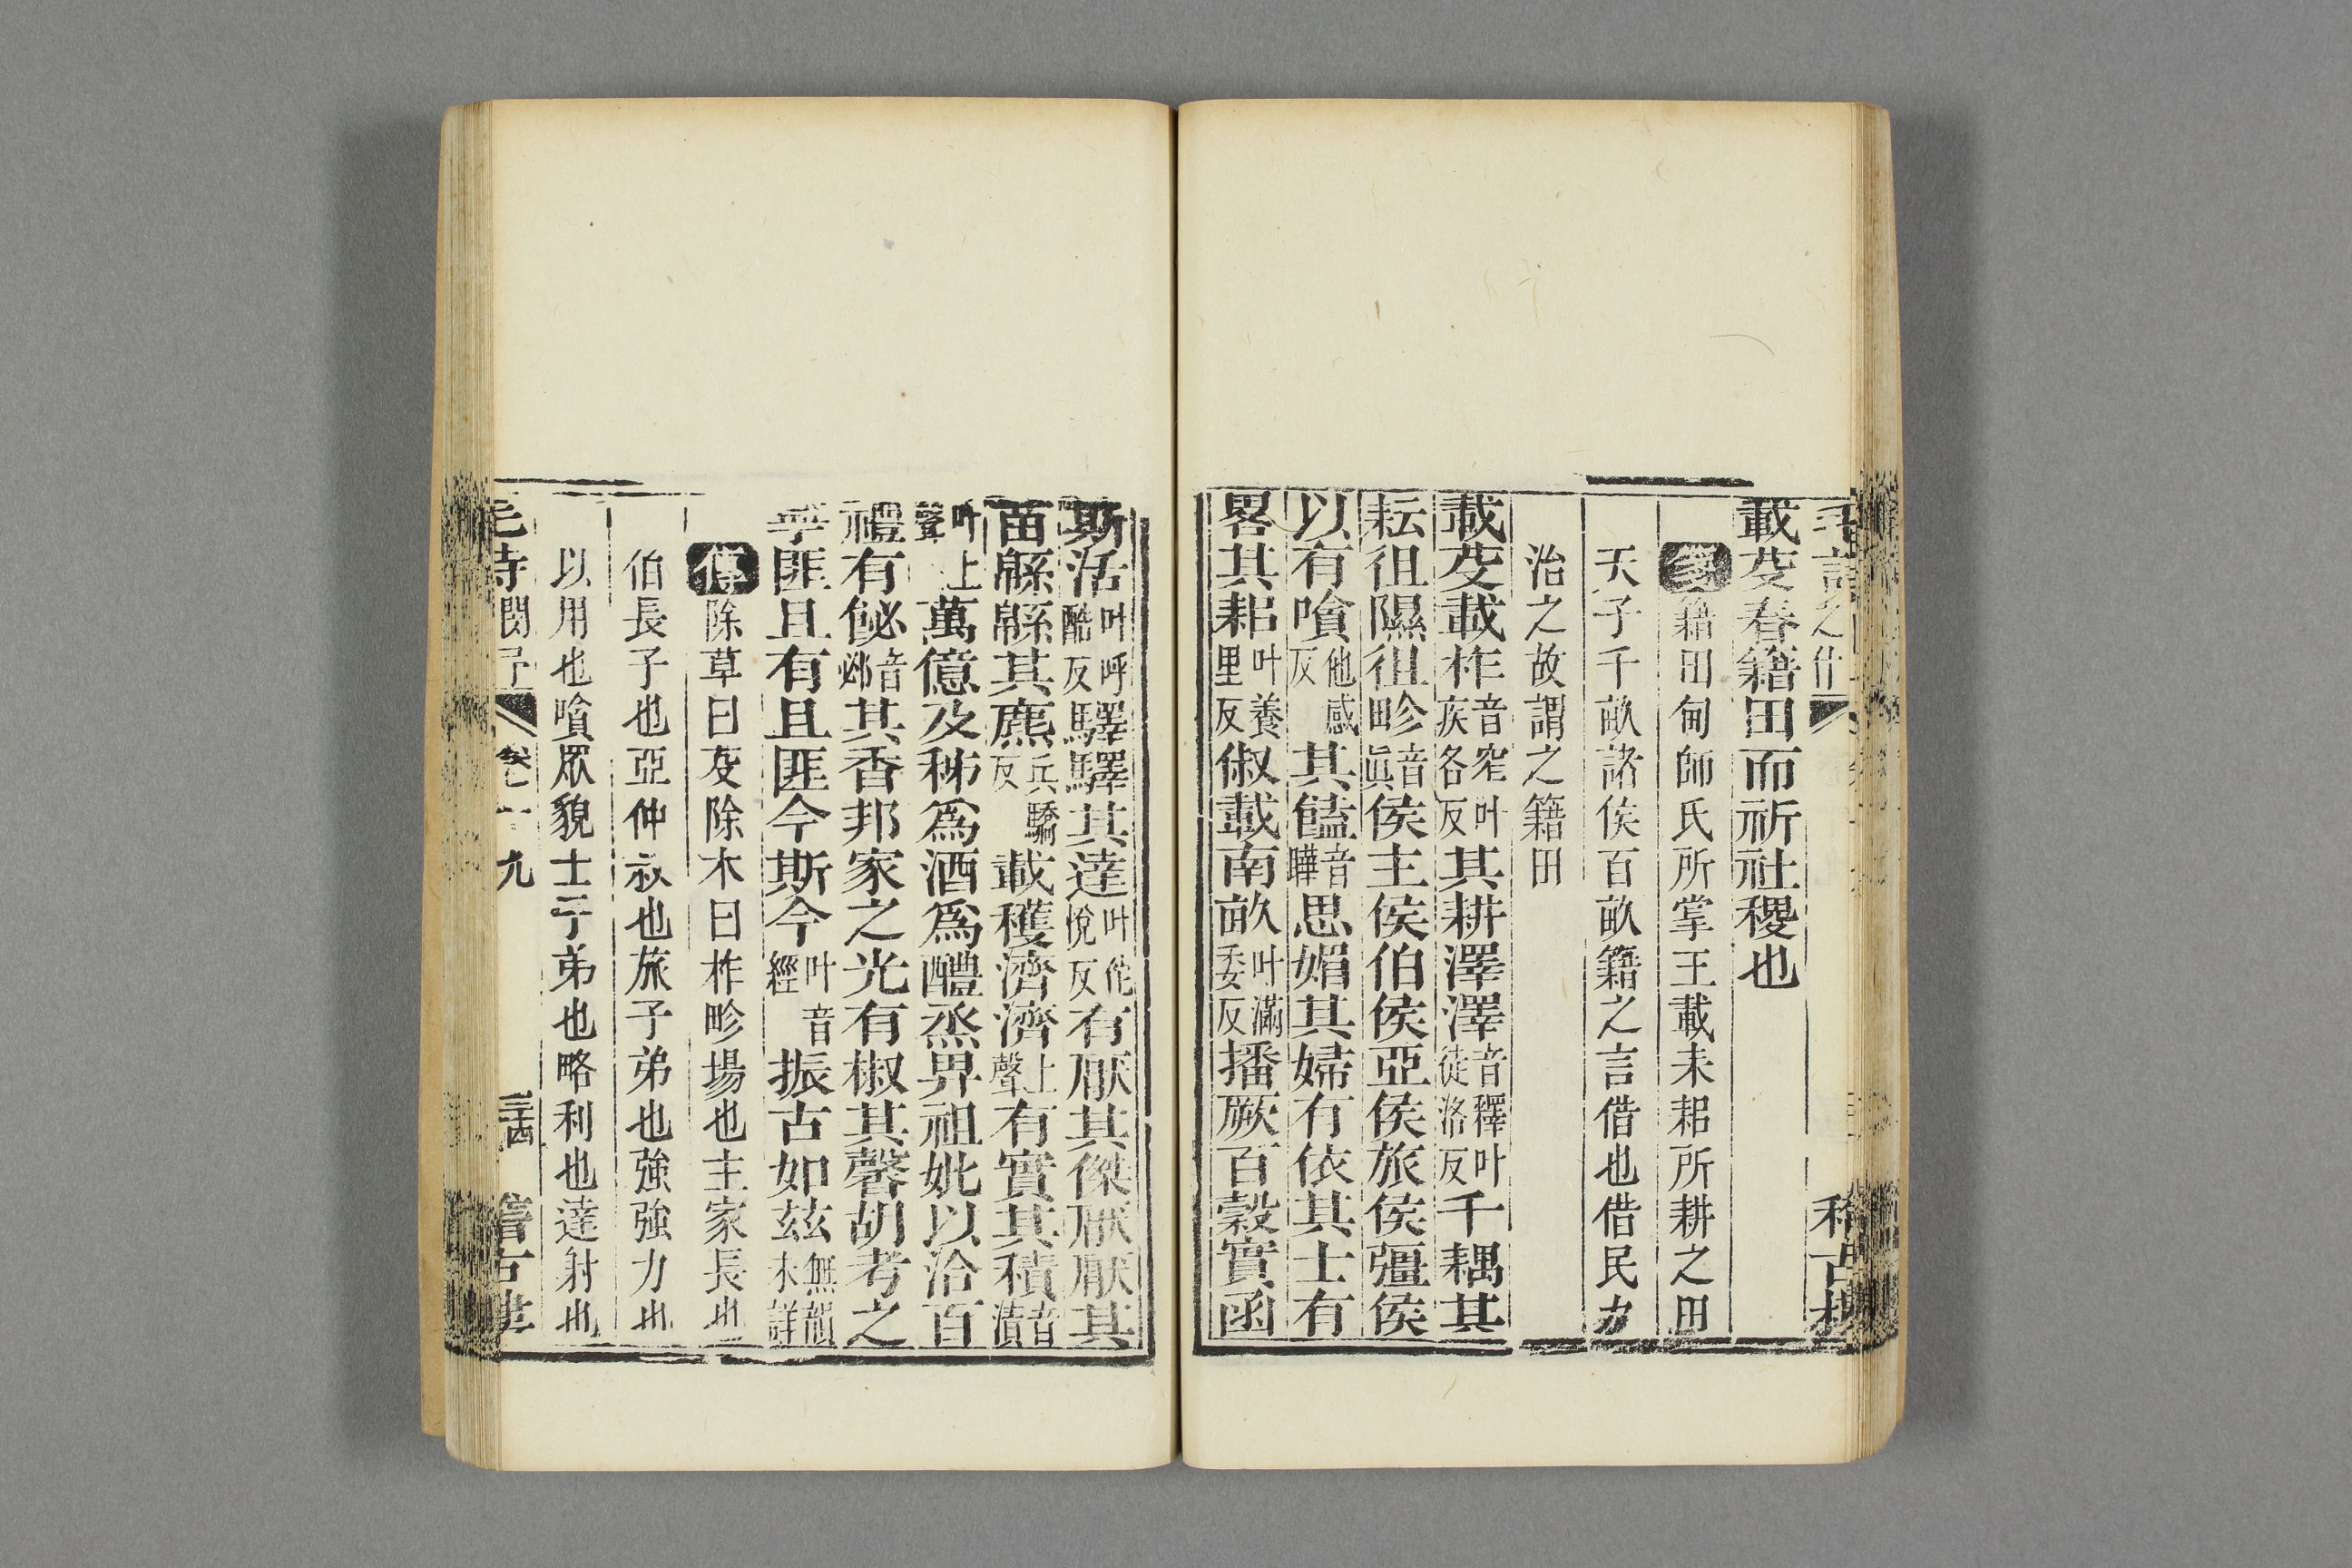 載芟春籍田而祈社稷也
籍田甸師氏所掌王載耒耜所耕之田
天子千畝諸侯百畝籍之言借也借民力
治之故謂之籍田
載芟載柞音窄叶疾各反其耕澤澤音釋叶徒洛反千耦其
耘徂隰徂畛音真侯主侯伯侯亞侯旅侯彊侯
以有嗿他感反其饁音曄思媚其婦有依其士有
畧其耜叶養里反俶載南畝叶滿委反播厥百穀實函
斯活叶呼酷反驛驛其達叶佗悅反有厭其傑厭厭其
苗緜緜其麃兵驕反載穫濟濟上聲有實其積音漬
叶上聲萬億及秭爲酒爲醴烝畀祖妣以洽百
禮有飶音邲其香邦家之光有椒其馨胡考之
寧匪且有且匪今斯今叶音經振古如茲無韻未詳
傳除草曰芟除木曰柞畛場也主家長也
伯長子也亞仲叔也旅子弟也強強力也
以用也嗿眾貌士子弟也略利也達射也
毛詩閔予 卷十九 三十四 稽古樓